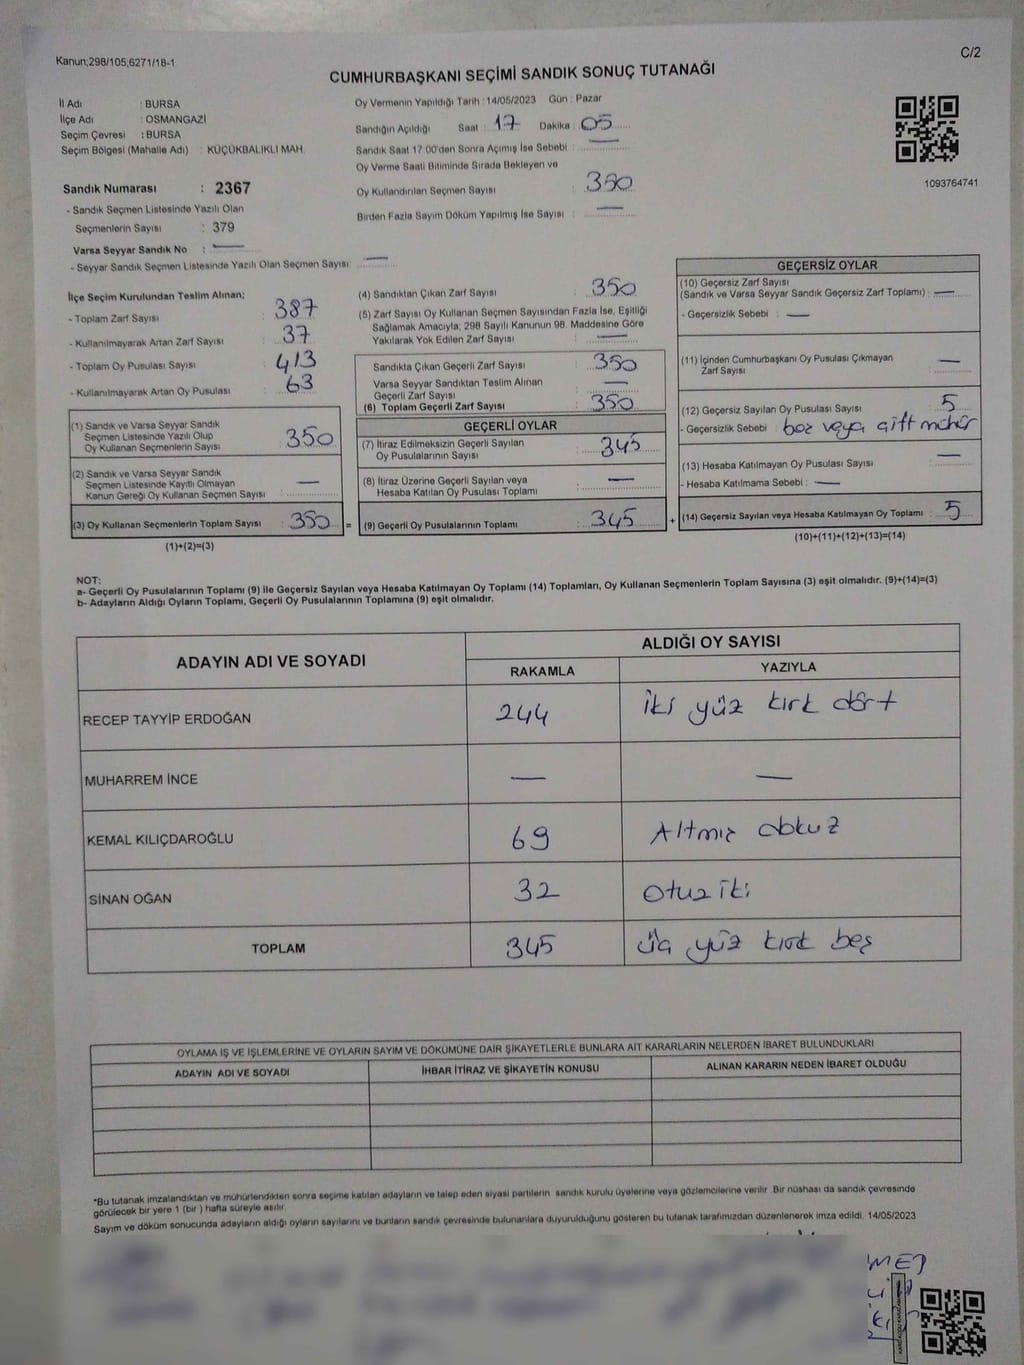 Kanun;298/105;6271/18-1
C/2
CUMHURBAŞKANI SEÇİMİ SANDIK SONUÇ TUTANAĞI
İl Adı : BURSA
İlçe Adı : OSMANGAZİ
Seçim Çevresi : BURSA
Seçim Bölgesi (Mahalle Adı) : KÜÇÜKBALIKLI MAH.
Sandık Numarası : 2367
- Sandık Seçmen Listesinde Yazılı Olan
Seçmenlerin Sayısı : 379
Varsa Seyyar Sandık No : —
- Seyyar Sandık Seçmen Listesinde Yazılı Olan Seçmen Sayısı: —
Oy Vermenin Yapıldığı Tarih : 14/05/2023 Gün : Pazar
Sandığın Açıldığı Saat : 17 Dakika : 05
Sandık Saat 17:00'den Sonra Açılmış İse Sebebi : —
Oy Verme Saati Bitiminde Sırada Bekleyen ve
Oy Kullandırılan Seçmen Sayısı : 350
Birden Fazla Sayım Döküm Yapılmış İse Sayısı : —
1093764741
İlçe Seçim Kurulundan Teslim Alınan;
- Toplam Zarf Sayısı : 387
- Kullanılmayarak Artan Zarf Sayısı : 37
- Toplam Oy Pusulası Sayısı : 413
- Kullanılmayarak Artan Oy Pusulası : 63
(1) Sandık ve Varsa Seyyar Sandık
Seçmen Listesinde Yazılı Olup
Oy Kullanan Seçmenlerin Sayısı : 350
(2) Sandık ve Varsa Seyyar Sandık
Seçmen Listesinde Kayıtlı Olmayan
Kanun Gereği Oy Kullanan Seçmen Sayısı : —
(3) Oy Kullanan Seçmenlerin Toplam Sayısı : 350 =
(1)+(2)=(3)
(4) Sandıktan Çıkan Zarf Sayısı : 350
(5) Zarf Sayısı Oy Kullanan Seçmen Sayısından Fazla İse, Eşitliği
Sağlamak Amacıyla; 298 Sayılı Kanunun 98. Maddesine Göre
Yakılarak Yok Edilen Zarf Sayısı : —
Sandıkta Çıkan Geçerli Zarf Sayısı : 350
Varsa Seyyar Sandıktan Teslim Alınan
Geçerli Zarf Sayısı : —
(6) Toplam Geçerli Zarf Sayısı : 350
GEÇERLİ OYLAR
(7) İtiraz Edilmeksizin Geçerli Sayılan
Oy Pusulalarının Sayısı : 345
(8) İtiraz Üzerine Geçerli Sayılan veya
Hesaba Katılan Oy Pusulası Toplamı : —
(9) Geçerli Oy Pusulalarının Toplamı : 345 +
GEÇERSİZ OYLAR
(10) Geçersiz Zarf Sayısı
(Sandık ve Varsa Seyyar Sandık Geçersiz Zarf Toplamı) : —
- Geçersizlik Sebebi : —
(11) İçinden Cumhurbaşkanı Oy Pusulası Çıkmayan
Zarf Sayısı : —
(12) Geçersiz Sayılan Oy Pusulası Sayısı : 5
- Geçersizlik Sebebi : boz veya çift mühür
(13) Hesaba Katılmayan Oy Pusulası Sayısı : —
- Hesaba Katılmama Sebebi : —
(14) Geçersiz Sayılan veya Hesaba Katılmayan Oy Toplamı : 5
(10)+(11)+(12)+(13)=(14)
NOT:
a- Geçerli Oy Pusulalarının Toplamı (9) ile Geçersiz Sayılan veya Hesaba Katılmayan Oy Toplamı (14) Toplamları, Oy Kullanan Seçmenlerin Toplam Sayısına (3) eşit olmalıdır. (9)+(14)=(3)
b- Adayların Aldığı Oyların Toplamı, Geçerli Oy Pusulalarının Toplamına (9) eşit olmalıdır.
ADAYIN ADI VE SOYADI
ALDIĞI OY SAYISI
RAKAMLA YAZIYLA
RECEP TAYYİP ERDOĞAN 244 iki yüz kırk dört
MUHARREM İNCE — —
KEMAL KILIÇDAROĞLU 69 Altmız dokuz
SİNAN OĞAN 32 otuz iki
TOPLAM 345 üç yüz kırk beş
OYLAMA İŞ VE İŞLEMLERİNE VE OYLARIN SAYIM VE DÖKÜMÜNE DAİR ŞİKAYETLERLE BUNLARA AİT KARARLARIN NELERDEN İBARET BULUNDUKLARI
ADAYIN ADI VE SOYADI İHBAR İTİRAZ VE ŞİKAYETİN KONUSU ALINAN KARARIN NEDEN İBARET OLDUĞU
*Bu tutanak imzalandıktan ve mühürlendikten sonra seçime katılan adayların ve talep eden siyasi partilerin sandık kurulu üyelerine veya gözlemcilerine verilir. Bir nüshası da sandık çevresinde
görülecek bir yere 1 (bir ) hafta süreyle asılır.
Sayım ve döküm sonucunda adayların aldığı oyların sayılarını ve bunların sandık çevresinde bulunanlara duyurulduğunu gösteren bu tutanak tarafımızdan düzenlenerek imza edildi. 14/05/2023